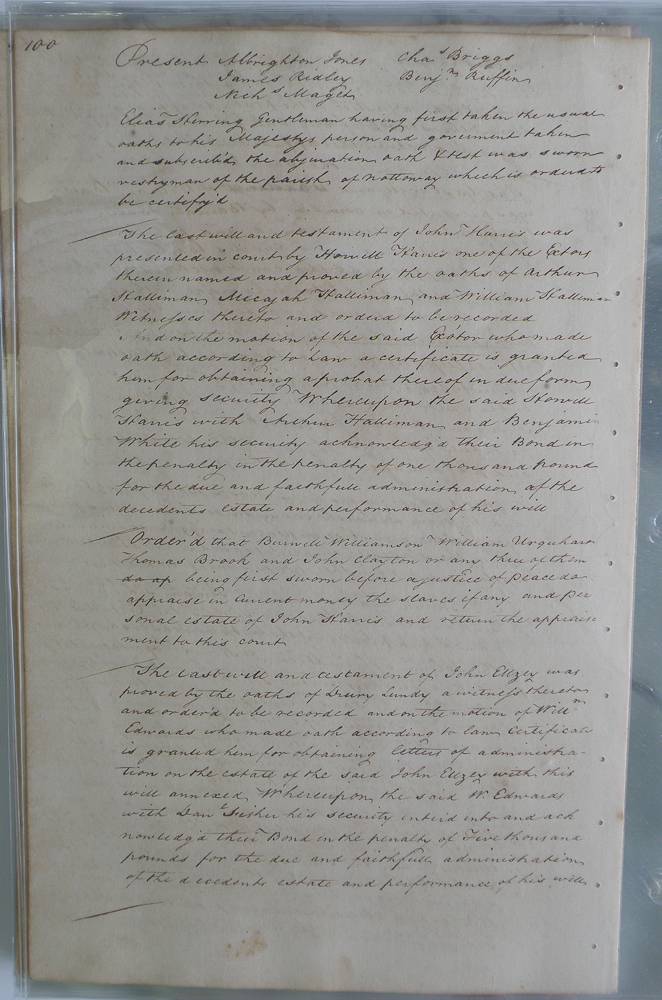 100
Present Albrighton Jones Chas Briggs
James Ridley Benjn Ruffin
Nichs Maget
Elias Herring Gentleman having first taken the usual
oaths to his Majestys person and goverment taken
and subscribd the abjuration oath & test was sworn
vestryman of the parish of Nottoway which is orderd to
be certify'd
The last will and testament of John Harris was
presented in court by Howell Harris one of the Extors
therein named and proved by the oaths of Arthur
Halliman, Micajah Halliman and William Halliman
Witnesses thereto and orderd to be recorded
And on the motion of the said Exŏtor who made
oath according to Law a certificate is granted
him for obtaining a probat thereof in due form
giving security Whereupon the said Howell
Harris with Halliman and Benjamin
White his security acknowledg'd their Bond in
the penalty in the penalty of one thousand pound
for the due and faithfull administration of the
decedents estate and performance of his will
Order'd that Burwell Williamson William Urquhart
Thomas Brook and John Clayton or any three of them
do ap being first sworn before a justice of peace do
appraise in current money the slaves if any and per
sonal estate of John Harris and return the appraise
ment to this court
The last will and testament of John Ellzey was
proved by the oaths of Drury Lundy a witness thereto
and order'd to be recorded and on the motion of Willm
Edwards who made oath according to law certificate
is granted him for obtaining letters of administra-
tion on the estate of the said John Ellzey with this
will annexed Whereupon the said W. Edwards
with Danl Fisher his security enterd into and ack
nowledg'd their Bond in the penalty of Five thousand
pounds for the due and faithfull administration
of the decedents estate and performance of his will